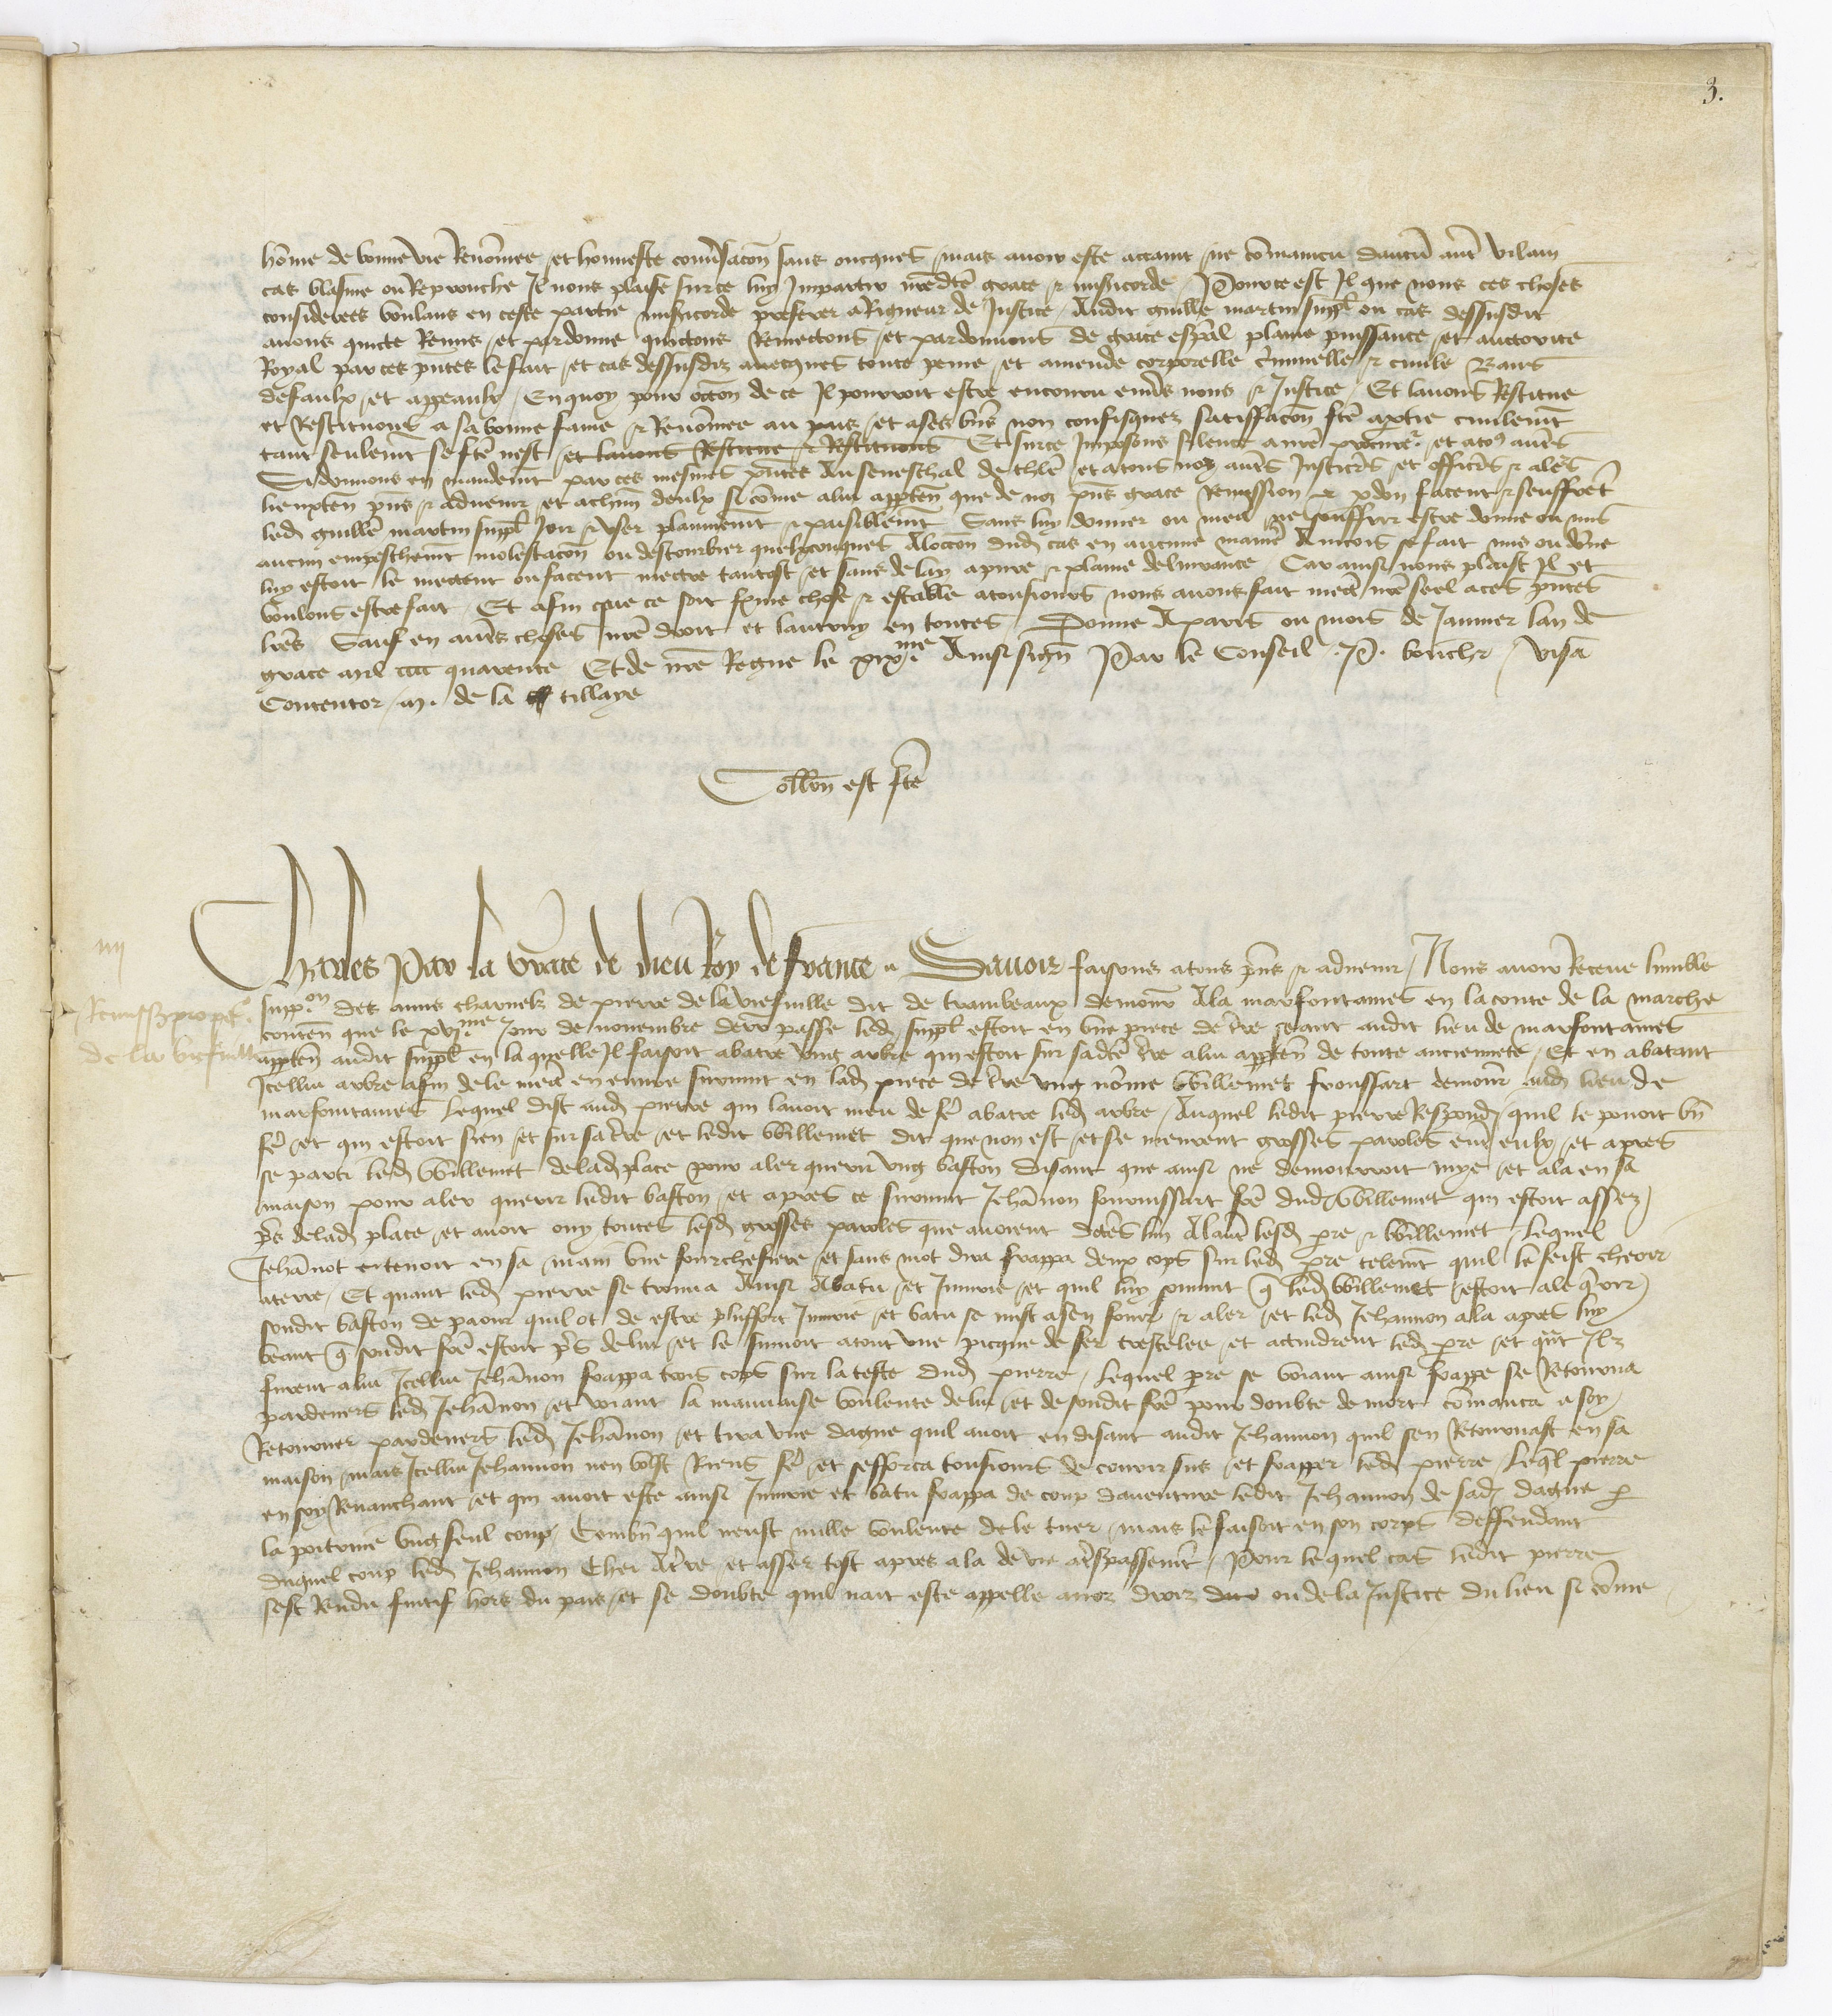 3.
hom̃e de bonne vie Renom̃ee et honneste conv̾sacõn sans oncques mais avoir este actaint ne convaincu daucũ aut̾ vilain
cas blasme ou Reprouche Il nous plaise sur ce luy Impartir nr̃edtẽ grace et mis̾icorde Pource est Il que nous ces choses
considerees voulans en ceste partie mis̾icorde preferer a Rigueur de Justice Audit guillẽ martin supp̃l ou cas dessusdit
avons quicte Remis et pardonne quictons Remectons et pardonnons de grace esp̃al plaine puissance et auctorite
Royal par ces p̃ntes le fait et cas dessusdiz avecques toute peine et amende corporelle c̾iminelle et civile Bans
defaulx et appeaulx En quoy pour occõn de ce Il pourroit estre encouru env̾s nous et Justice Et lavons Restitue
et Restituons a sa bonne fame et Renom̃ee au pais et a ses bñs non confisquez satisffacõn ftẽ a partie civilem̃t
tant seulem̃t se ftẽ nest et lavons Restitue et Restituons Et sur ce Imposons silence a nr̃e procureʳ et a tous aut̾s
Si donnons en mandem̃t par ces mesmes p̃ntes Au seneschal de thlẽ et a tous noz aut̾s Justic̾s et offic̾s et a leʳs
lieuxteñ p̃ns et advenir et a chũn deulx si com̃e a lui appteñ que de noz p̃ns grace Remission et p̱don facent et seuffrẽt
led̃ guillẽ martin supp̃l Joir et user plainnem̃t et paisiblem̃t Sans luy donner ou mect̾ ne souffrir estre donne ou mis
aucun empeschem̃t molestacõn ou destourbier quelxconques A loccõn dud̃ cas en aucune manie̾ Aincois se fait mis ou dõne
luy estoit le mectent ou facent mectre tantost et sans delay a pure et plaine delivrance Car ainsi nous plaist Il et
voulons estre fait Et afin que ce soit f̾me chose et estable a tousiours nous avons fait mect̾ nr̃e seel a ces p̃ntes
lr̃es Sauf en aut̾s choses nr̃e droit et lautruy en toutes Donne A paris ou mois de Janvier lan de
grace mil cccc quarente Et de nr̃e Regne le xixᵐᵉ Ainsi signẽ Par le Conseil P. boucher Visa
Contentor m. de la tillaye
Collõn est ftẽ
iiii
Charles Par la Grace de dieu Roy de France Savoir faisons a tous p̃ns et advenir Nous avoir Receue lumble
Remiss̃ pro pet̾.
de la viefville
supp.ᵒⁿ des amis charnelz de pierre de la viefville dit de trambeaux demour̾ A la marfontaines en la conte de la marche
conteñ que le xviᵐᵉ Jour de novembre derr̾ passe led̃ supp̃l estoit en une piece de t̾re seant audit lieu de marfontaines
appteñ audit supp̃l en laquelle Il faisoit abatre ung arbre qui estoit sur sadtẽ t̾re a lui appteñ de toute anciennete Et en abatant
Icellui arbre afin de le mect̾ en euvre survint en lad̃ piece de t̾re ung nom̃e Willemet froussart demour̾ aud̃ lieu de
marfontaines Lequel dist aud̃ pierre qui lavoit meu de fẽ abatre led̃ arbre Auquel ledit pierre Respond̃ quil le povoit bñ
fẽ et qui estoit sien et sur sa t̾re et ledit Willemet dit que non est et se meurent grosses paroles ent̾ eulx et apres
se parti led̃ Willemet de lad̃ place pour aler querir ung baston disant que ainsi ne demourroit mye et ala en sa
maison pour aler querir ledit baston et apres ce survint Jehan̄non fourrissart fr̃e dud̃ Willemet qui estoit assez
p̾s de lad̃ place et avoit ouy toutes lesd̃ grosses paroles que avoient lun A laut̾ lesd̃ p̱re et Willemet Lequel
Jehan̄not en tenoit en sa main une fourchefiere et sans mot dire frappa deux cops sur led̃ p̱re telem̃t quil le feist cheoir
a terre Et quant led̃ pierre se trouva Ainsi Abatu et Iniurie et quil luy souvint q̃ led̃ Willemet estoit ale q̾rir
sondit baston de paour quil ot de estre pluffort Iniurie et batu se mist a sen fouir et aler et led̃ Jehannon ala apres luy
veant q̃ sondit fr̃e estoit p̾s de lui et le suivoit atout une picque de fer et actaindrent led̃ p̱re et qũt Ilz
furent a lui Icellui Jehan̄non frappa trois cops sur la teste dud̃ pierre Lequel p̱re se voiant ainsi frappe se Retourna
pardevers led̃ Jehan̄non et voiant la mauvaise voulente de lui et de sondit fr̃e pour doubte de mort com̃anca a soy
Retourner pardevers led̃ Jehan̄non et tira une dague quil avoit en disant audit Jehannon quil sen Retournast en sa
maison mais Icellui Jehannon nen volt Riens fẽ et sefforca tousiours de courir sus et frapper led̃ pierre Leq̃l pierre
en soy Revanchant et qui avoit este ainsi Iniurie et batu frappa de coup daventure ledit Jehannon de sad̃ dague p̱
la poitrine ung seul coup Combñ quil neust nulle voulente de le tuer mais le faisoit en son corps deffendant
duquel coup led̃ Jehannon chei A t̾re et assez tost apres ala de vie a t̾spassem̃t Pour lequel cas ledit pierre
sest Rendu fuitif hors du pais et se doubte quil nait este appelle a noz droiz ou de la Justice du lieu si com̃e